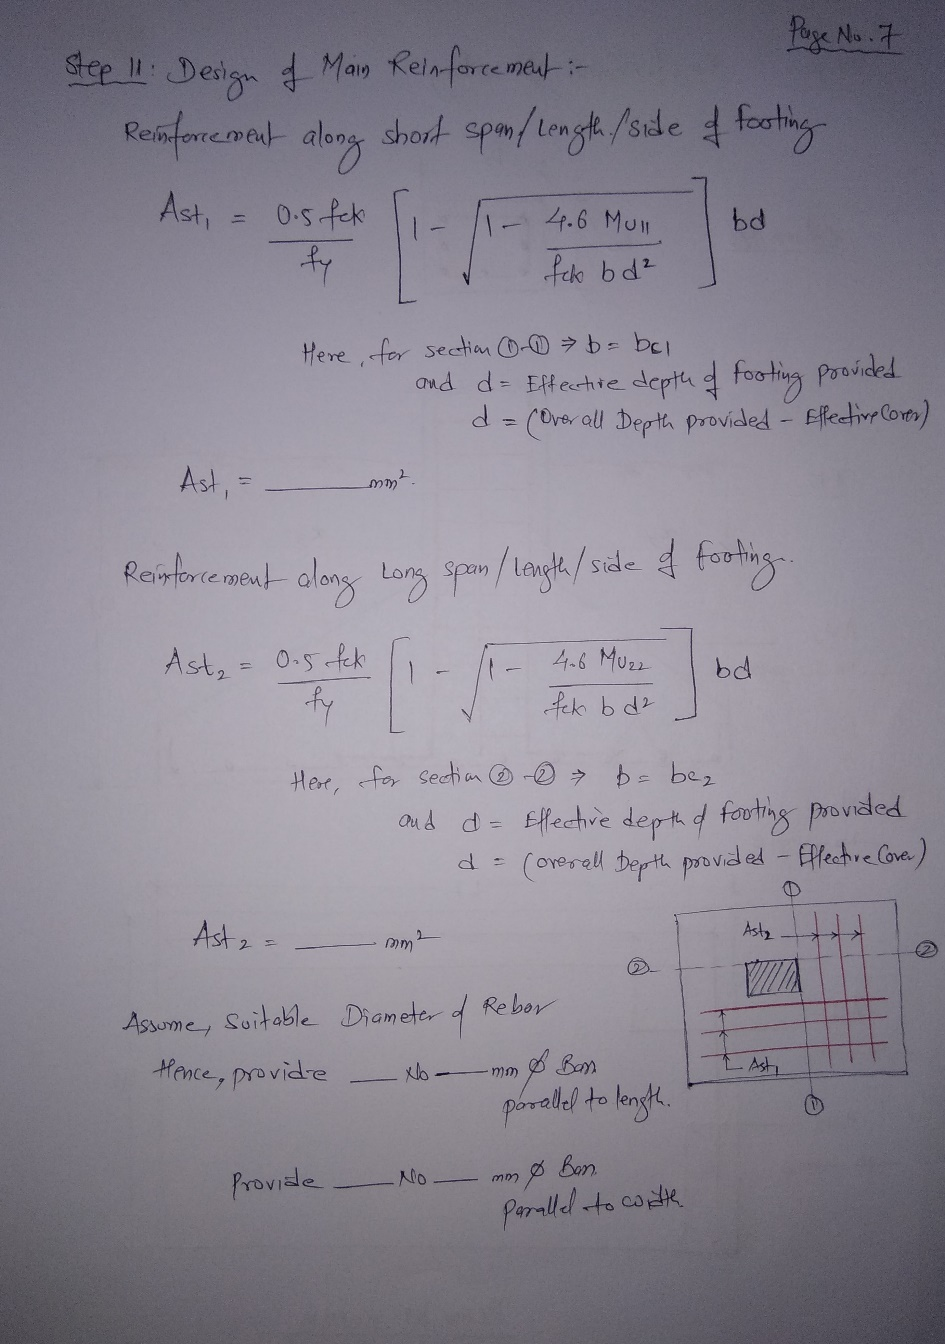 Page No. 7
Step 11: Design of Main Reinforcement :-
Reinforcement along short span/Length/side of footing
Ast₁ = 0.5 fck / fy [ 1 - √(1 - 4.6 Mu11 / fck b d²) ] bd
Here, for section ①-① ⇒ b = bc1
and d = Effective depth of footing provided
d = (Over all Depth provided - Effective Cover)
Ast₁ = ______ mm².
Reinforcement along Long span/length/side of footing.
Ast₂ = 0.5 fck / fy [ 1 - √(1 - 4.6 Mu22 / fck b d²) ] bd
Here, for section ②-② ⇒ b = bc2
and d = Effective depth of footing provided
d = (overall Depth provided - Effective Cover)
①
Ast 2 = ______ mm²
Ast₂
② ②
Assume, Suitable Diameter of Rebar
Hence, provide ___ No ___ mm ø Bars
Ast₁
parallel to length.
①
Provide ___ No ___ mm ø Bars
Parallel to width